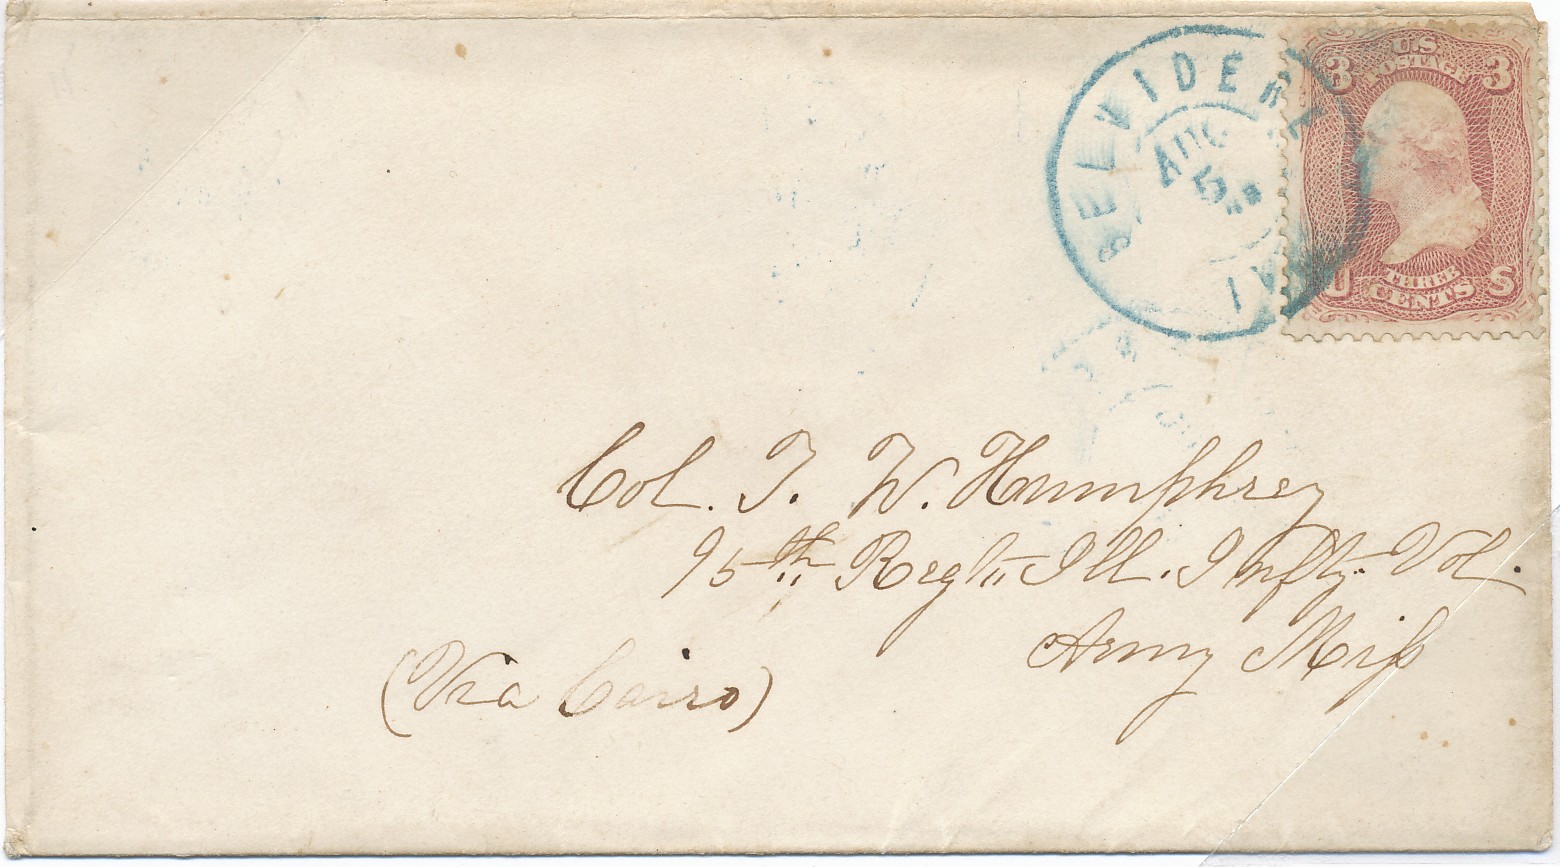 BELVIDERE
AUG
5
U.S
POSTAGE
3 3
THREE
CENTS
U S
Col. T. W. Humphrey
95th Regt. Ill. Infty. Vol.
Army Miss
(Via Cairo)